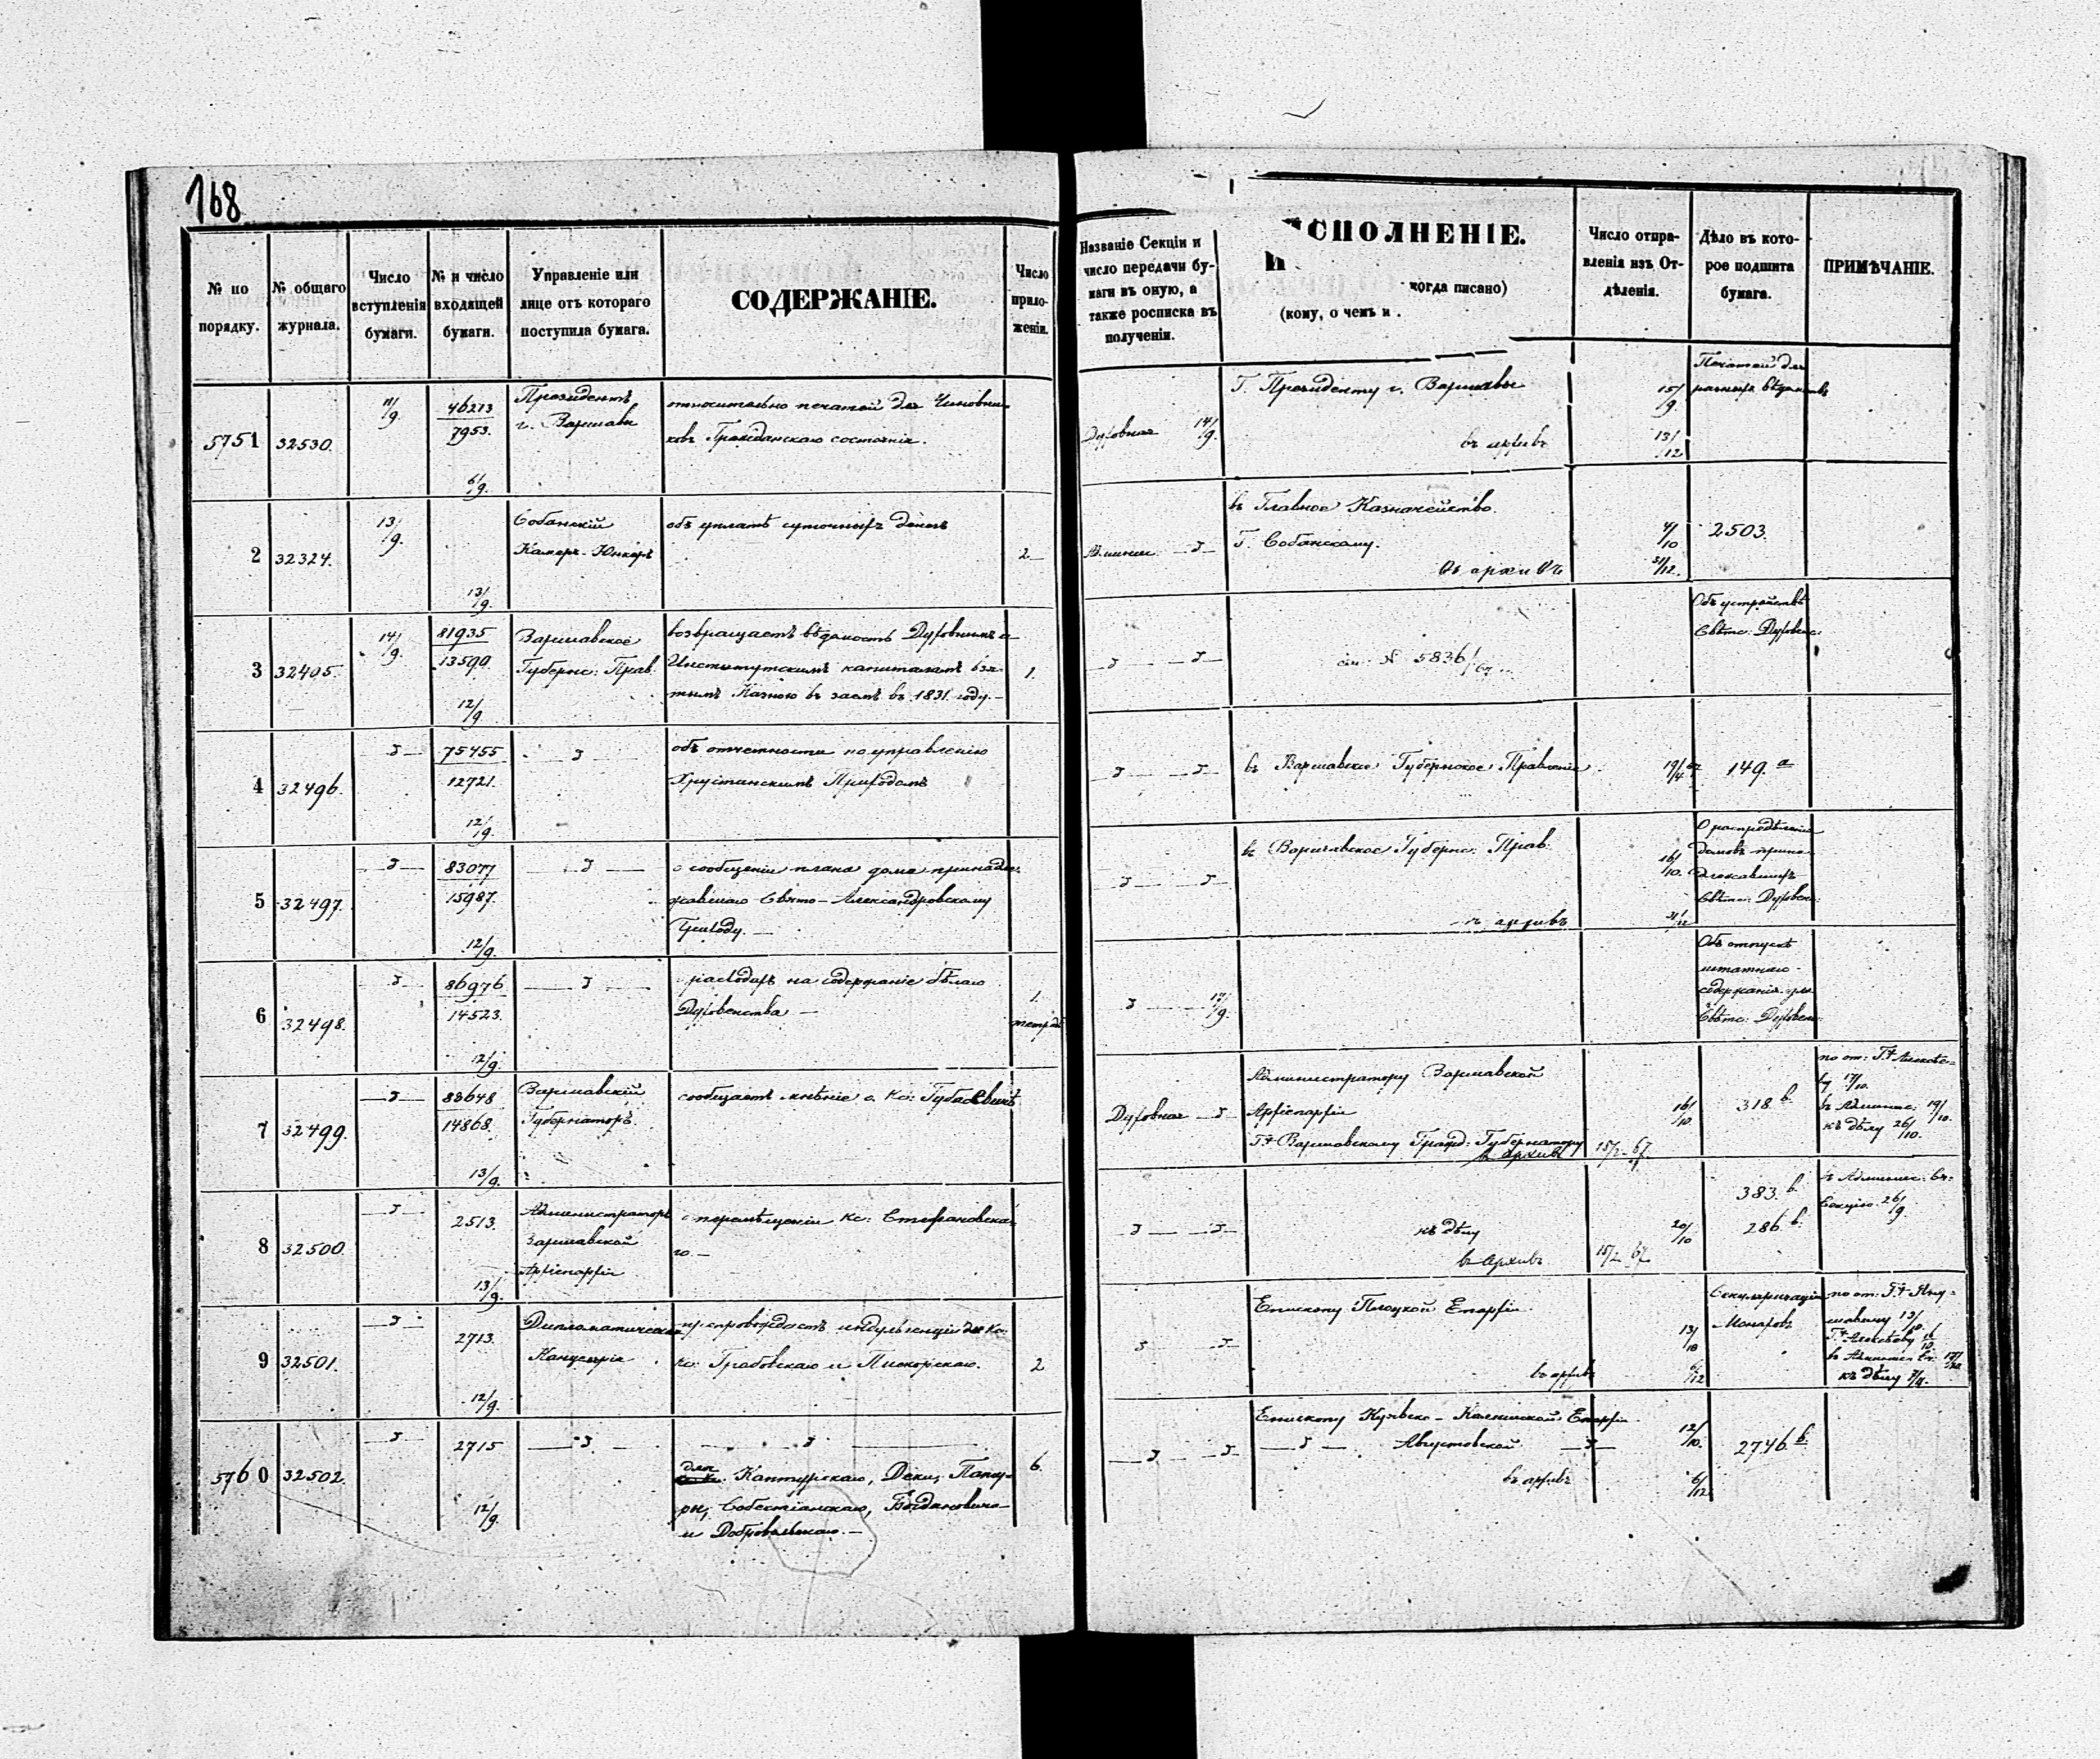 168
№ по порядку.
№ общаго журнала.
Число вступленія бумаги.
№ и число входящей бумаги.
Управленіе или лице отъ котораго поступила бумага.
СОДЕРЖАНІЕ.
Число прило- женіи.
Названіе Секціи и число передачи бу- маги въ оную, а также росписка въ полученіи.
СПОЛНЕНІЕ.
(кому, о чемъ и когда писано)
Число отпра- вленія изъ От- дѣленія.
Дѣло въ кото- рое подшита бумага.
ПРИМѢЧАНІЕ.
5751 32530. 11/9 46273 7953. 6/9.
Президентъ
г. Варшавы
относительно печатей для Чиновни-
ковъ Гражданскаго состоянія.
Духовная 14/9.
Г. Президенту г. Варшавы 15/9.
въ архивъ 13/12
Печатей для
разныхъ вѣдомствъ
2 32324. 13/9. 13/9.
Собанскій
Камеръ-Юнкеръ
объ уплатѣ суточныхъ денегъ
2
въ Главное Казначейство.
Г. Собанскому. 4/10
Въ архивъ 31/12.
2503.
3 32405. 14/9. 81935 13590. 12/9
Варшавское
Губернс: Прав.
возвращаетъ вѣдомость Духовнымъ и
Институтскимъ капиталамъ взя-
тымъ Казною въ заемъ въ 1831. году.—
1.
см. № 5836/67.
Объ устройствѣ
Свѣтс: Духовенс:
4 32496. 75455 12721. 12/9.
объ отчетности по управленію
Приходомъ
въ Варшавское Губернское Правленіе 19/4 67
149. а
5 32497. 83077 15987. 12/9.
о сообщеніи плана дома принадле-
жавшаго Свято-Александровскому
Приходу.—
въ Варшавское Губернс: Прав. 16/10.
въ архивъ 31/12
О распредѣленіи
домовъ прина-
длежавшихъ
Свѣтс: Духовен:
6 32498. 86976 14523. 12/9.
расходахъ на содержаніе бѣлаго
Духовенства —
1. тетрадь
17/9.
Объ отпускѣ
штатнаго
содержанія для
Свѣтс: Духовен:
7 32499. 83648 14868. 13/9.
Варшавскій
Губернаторъ.
сообщаетъ мнѣніе о Кс:
Духовная
Администратору Варшавской
Архіепархіи 16/10.
Варшавскому Гражд: Губернатору
въ архивъ 15/2 67
318. в
въ Админис: 19/10.
къ дѣлу 26/10.
8 32500. 2513. 13/9.
Администраторъ
Варшавской
Архіепархіи
о перемѣщеніи Кс: Стефановска-
го.—
къ дѣлу 20/10
въ Архивъ 15/2 67
383. в.
286. в.
Секцію. 26/9
9 32501. 2713. 12/9.
Дипломатическая
Канцелярія
препровождаетъ индульгенціи для Кс:
Кс: Грабовскаго и Піскорскаго.
2
Епископу Плоцкой Епархіи. 13/10
въ архивъ 6/12
Секуляризація
Монаховъ
къ дѣлу
5760 32502. 2715 12/9.
для
Каптурскаго,
Собестіанскаго, Богдановича
и Добровольскаго.—
6.
Епископу Куявско-Калишской Епархіи. 12/10.
Августовской
въ архивъ 6/12
2746 в.